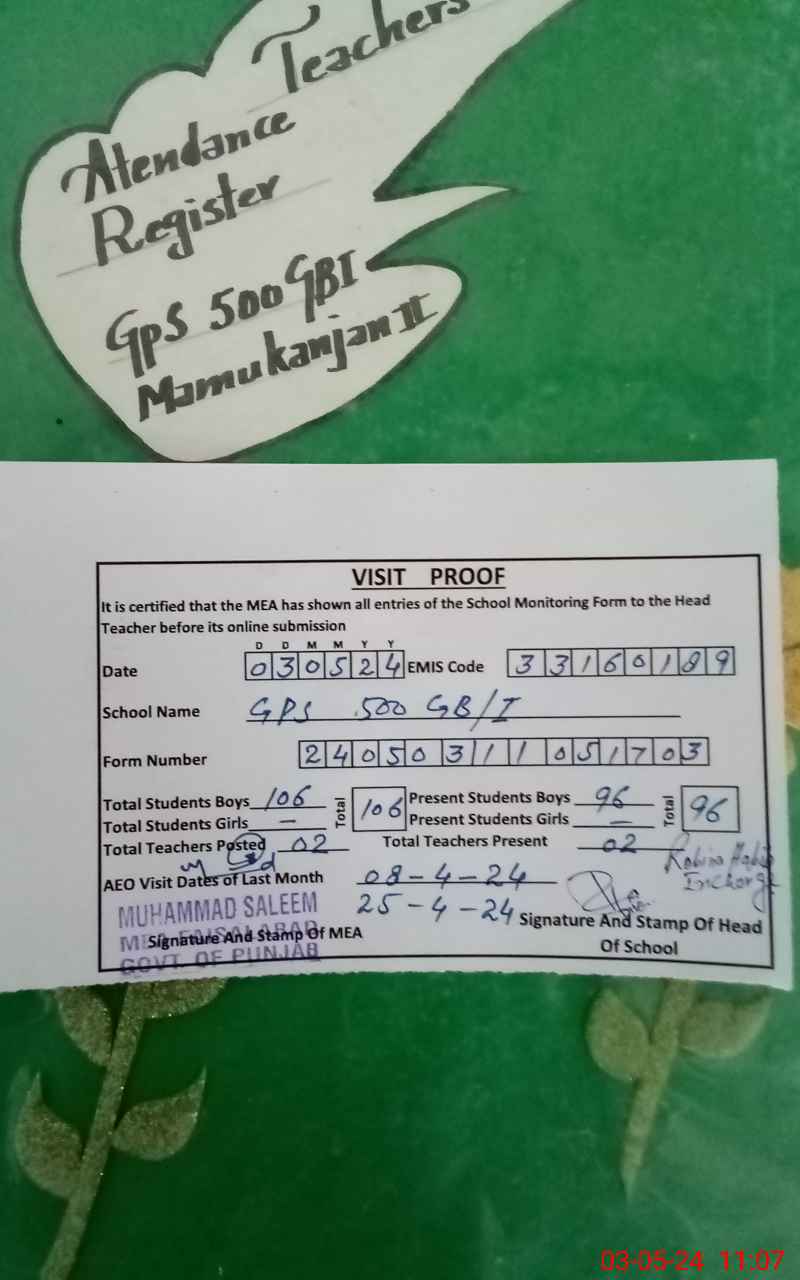 Teachers
Atendance
Register
GpS 500 GBI
Mamukanjan II
VISIT PROOF
It is certified that the MEA has shown all entries of the School Monitoring Form to the Head
Teacher before its online submission
D D M M Y Y
Date 030524 EMIS Code 33160189
School Name GPS 500 GB/I
Form Number 24050311051703
Total Students Boys 106 Total 106 Present Students Boys 96 Total 96
Total Students Girls – Present Students Girls –
Total Teachers Posted 02 Total Teachers Present 02
Robina
Incharge
AEO Visit Dates of Last Month 08-4-24
25-4-24
MUHAMMAD SALEEM
MEA FAISALABAD
GOVT. OF PUNJAB
Signature And Stamp Of MEA
Signature And Stamp Of Head
Of School
03-05-24 11:07